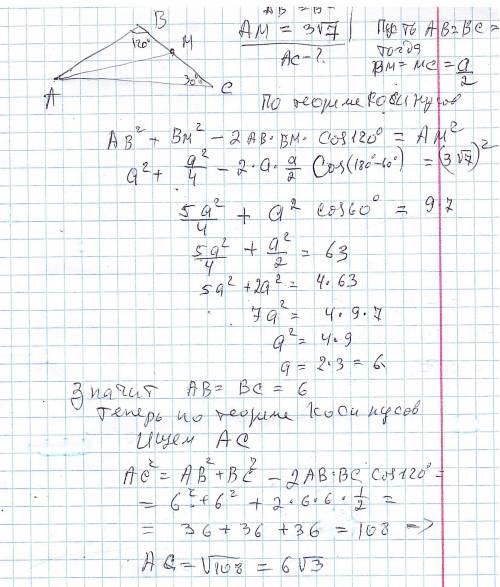 B
120°
M
A
30°
C
AB = B
AM = 3√7
AC - ?
Пусть AB = BC =
тогда
BM = MC = a/2
По теореме косинусов
AB² + BM² - 2AB · BM · cos120° = AM²
a² + a²/4 - 2 · a · a/2 cos(180° - 60°) = (3√7)²
5a²/4 + a² cos60° = 9·7
5a²/4 + a²/2 = 63
5a² + 2a² = 4 · 63
7a² = 4 · 9 · 7
a² = 4 · 9
a = 2 · 3 = 6
Значит AB = BC = 6
Теперь по теореме косинусов
ищем AC
AC² = AB² + BC² - 2AB·BC cos120° =
= 6² + 6² + 2 · 6 · 6 · 1/2 =
= 36 + 36 + 36 = 108 =>
AC = √108 = 6√3